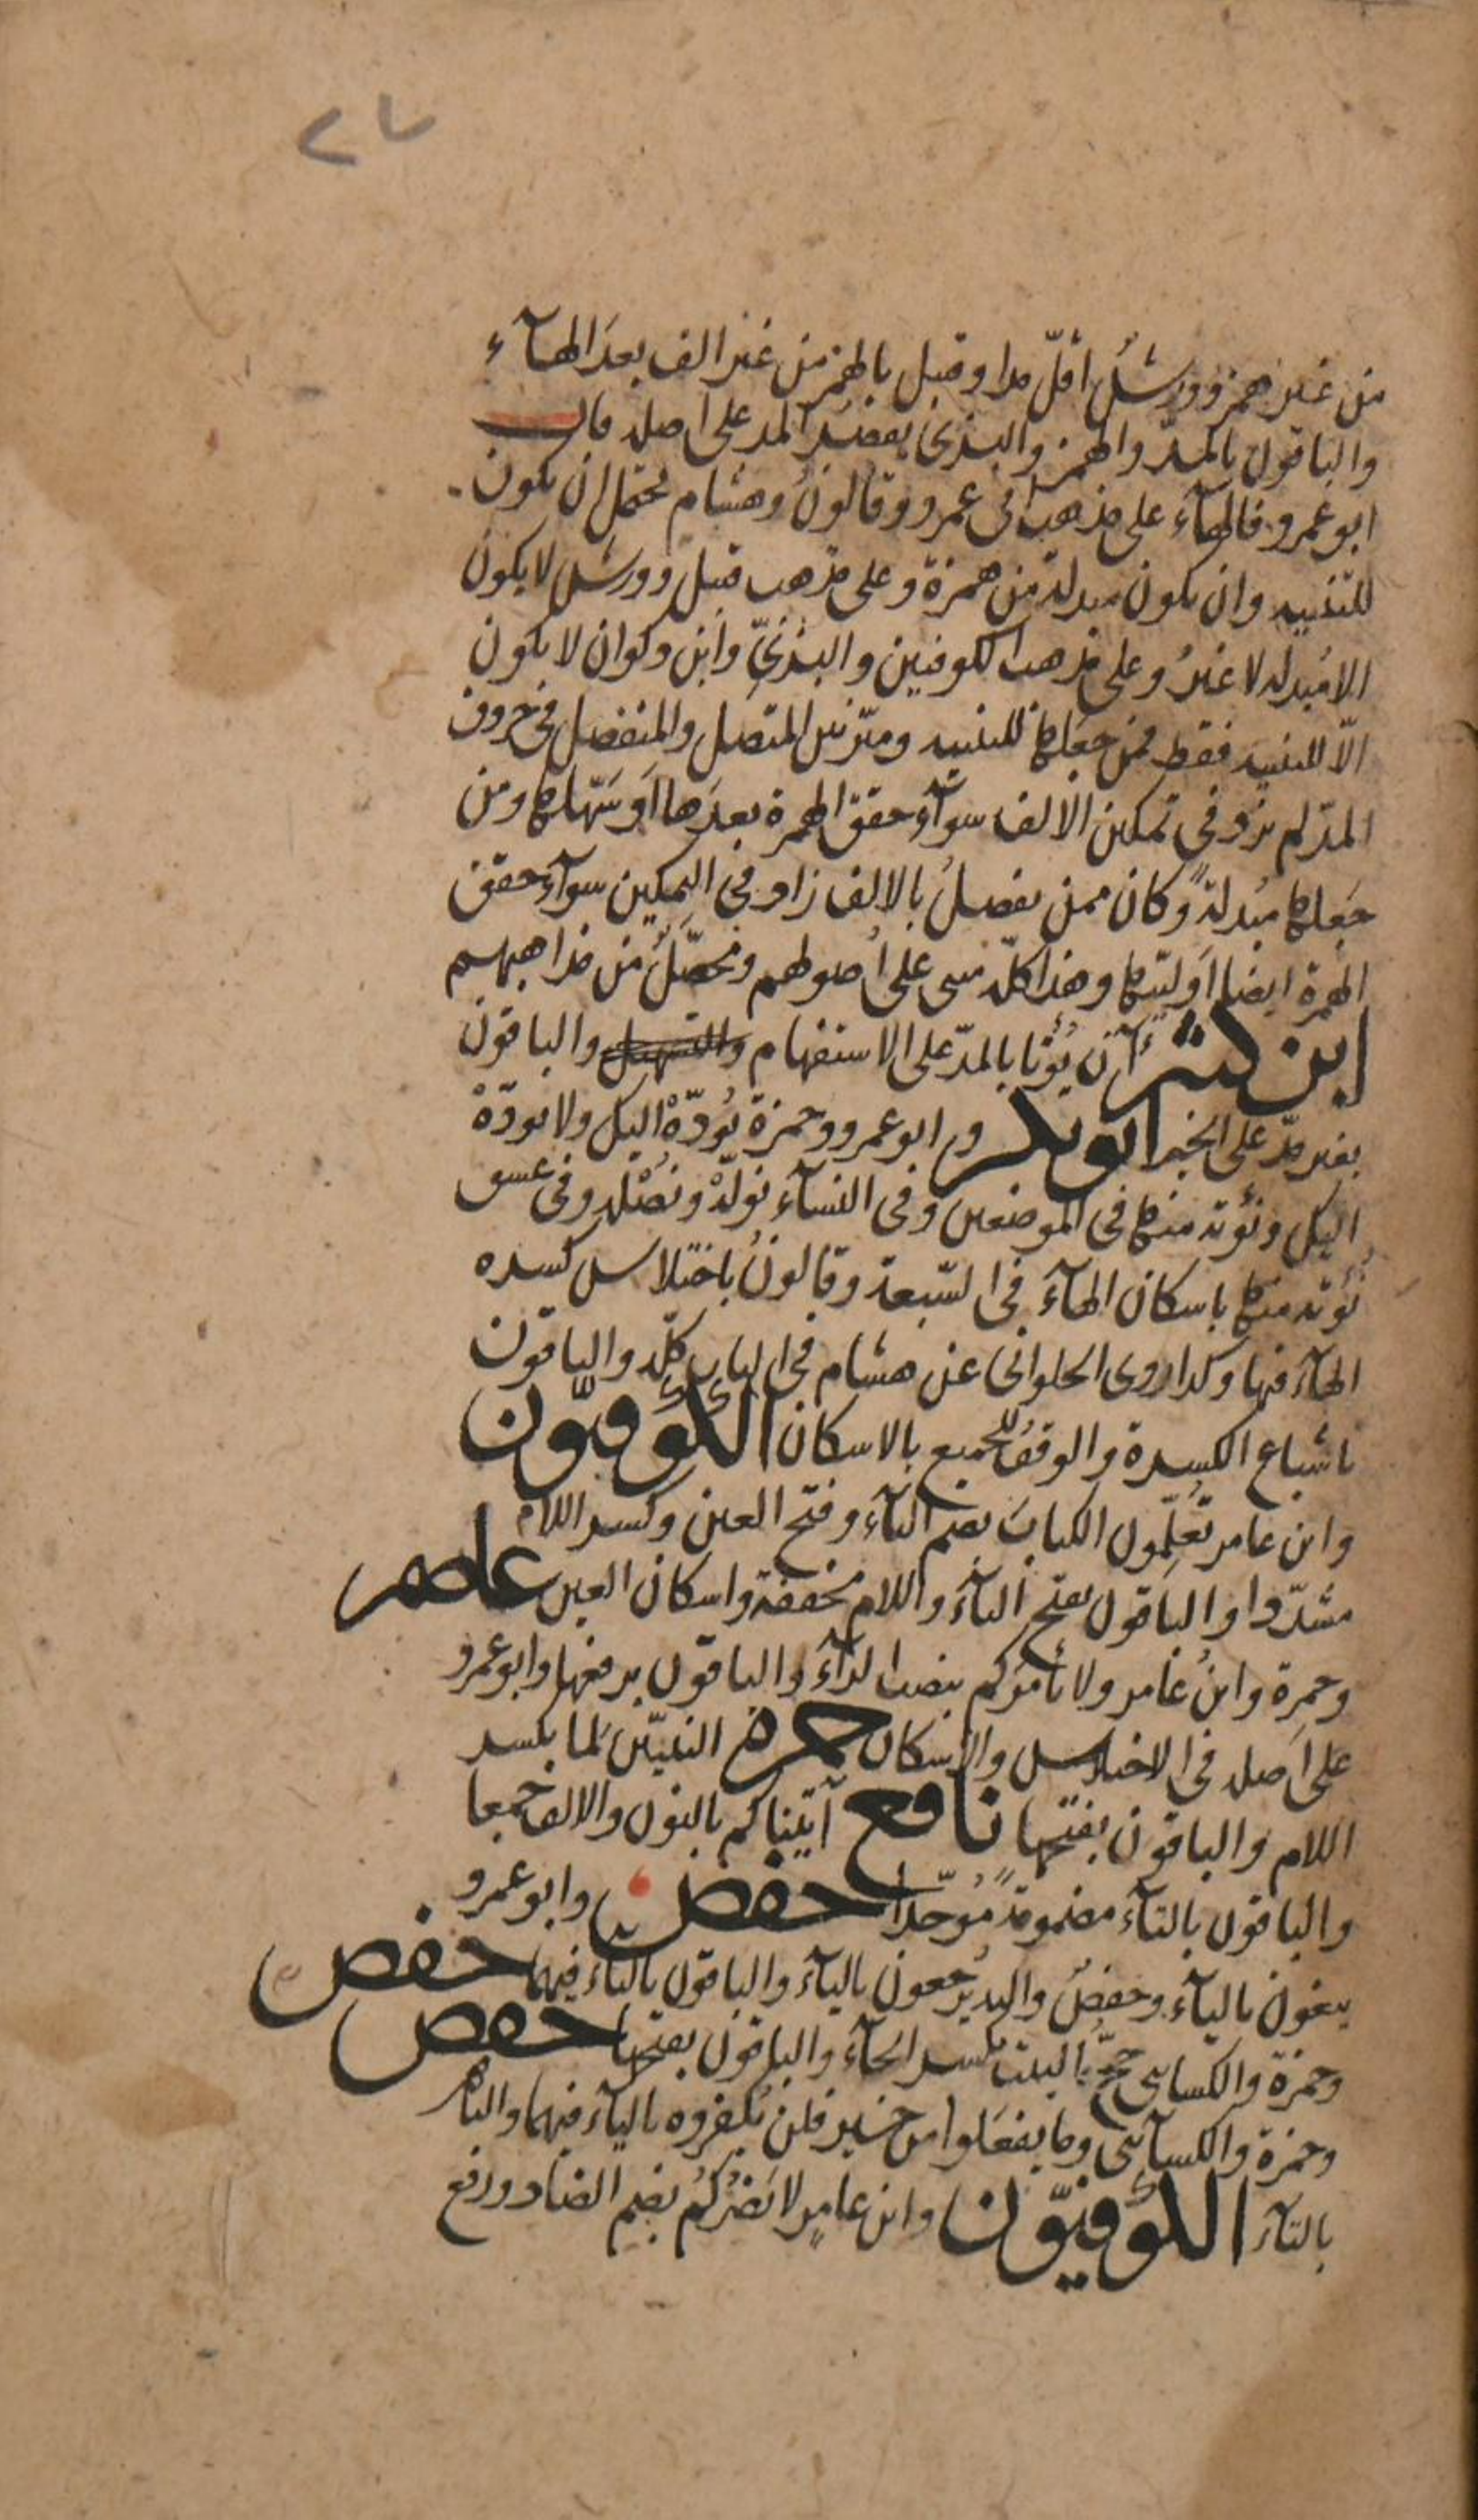 ٢٧
من غير همز وورش اقلّ مدا وقنبل بالهمز من غير الف بعد الهآء
والباقون بالمدّ والهمز والبزىّ يقصر المد على اصله قال
ابو عمرو فالهآء على مذهب ابى عمرو وقالون وهشام يحتمل ان يكون
للتنبيه وان يكون مبدلة من همزة وعلى مذهب قنبل وورش لا يكون
الا مبدلة لا غير وعلى مذهب الكوفيين والبزىّ وابن ذكوان لا يكون
الّا للتنبيه فقط فمن جعلها للتنبيه وميّز بين المتصل والمنفصل فى حروف
المدّ لم يزد فى تمكين الالف سوآء حقق الهمزة بعدها او سهّلها ومن
جعلها مبدلة وكان ممن يفصل بالالف زاد فى التمكين سوآء حقق
الهمزة ايضا او ليّنها وهذا كلّه مبنى على اصولهم ومحصّل من مذاهبهم
ابن كثير ءآن يؤتا بالمدّ على الاستفهام والتسهيل والباقون
بغير مدّ على الخبر ابو بكر وابو عمرو وحمزة يؤدّهْ اليك ولا يؤدّهْ
اليك ونؤته منها فى الموضعين وفى النسآء نولّهْ ونصْله وفى عسق
نؤته منها باسكان الهآء فى السّبعة وقالون باختلاس كسره
الهآء فيها وكذا روى الحلوانى عن هشام فى الباب كلّه والباقون
باشباع الكسرة والوقف للجميع بالاسكان الكوفيّون
وابن عامر تُعلِّمون الكتاب بضم التآء وفتح العين وكسر اللام
مشدّدا والباقون بفتح التآء واللام مخففة واسكان العين عاصم
وحمزة وابن عامر ولا يأمركم بنصب الرآء والباقون برفعها وابو عمرو
على اصله فى الاختلاس والاسكان حمزة النبيّن لما بكسر
اللام والباقون بفتحها نافع آتيناكم بالنون والالف جميعا
والباقون بالتآء مضمومة مُوحّدا حفص وابو عمرو
يبغون باليآء وحفص واليه يُرجعون باليآء والباقون بالتآء فيهما حفص
وحمزة والكسائى حجّ البيت بكسر الحآء والباقون بفتحها حفص
وحمزة والكسآئى وما يفعلوا من خير فلن يكفروه باليآء فيهما والباقون
بالتآء الكوفيّون وابن عامر لا يضرّكم بضم الضاد ورفع